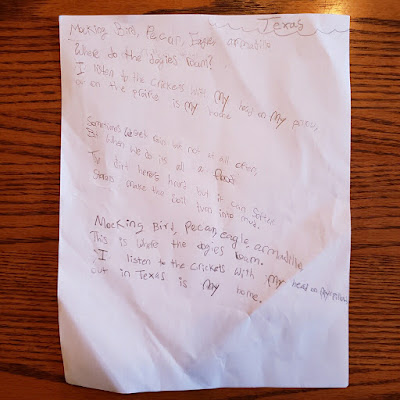 Texas
Mocking Bird, Pecan, Eagle, armadillo
Where do the dogies roam?
I listen to the crickets with my head on my pillow,
out on the is my home
Sometimes we get rain but not at all often,
But when we do its all a
The dirt heres hard but it can soften
make the soil turn into mud.
Mocking Bird, Pecan, eagle, armadillo
This is where the dogies roam.
I listen to the crickets with my head on my pillow
out in Texas is my home.